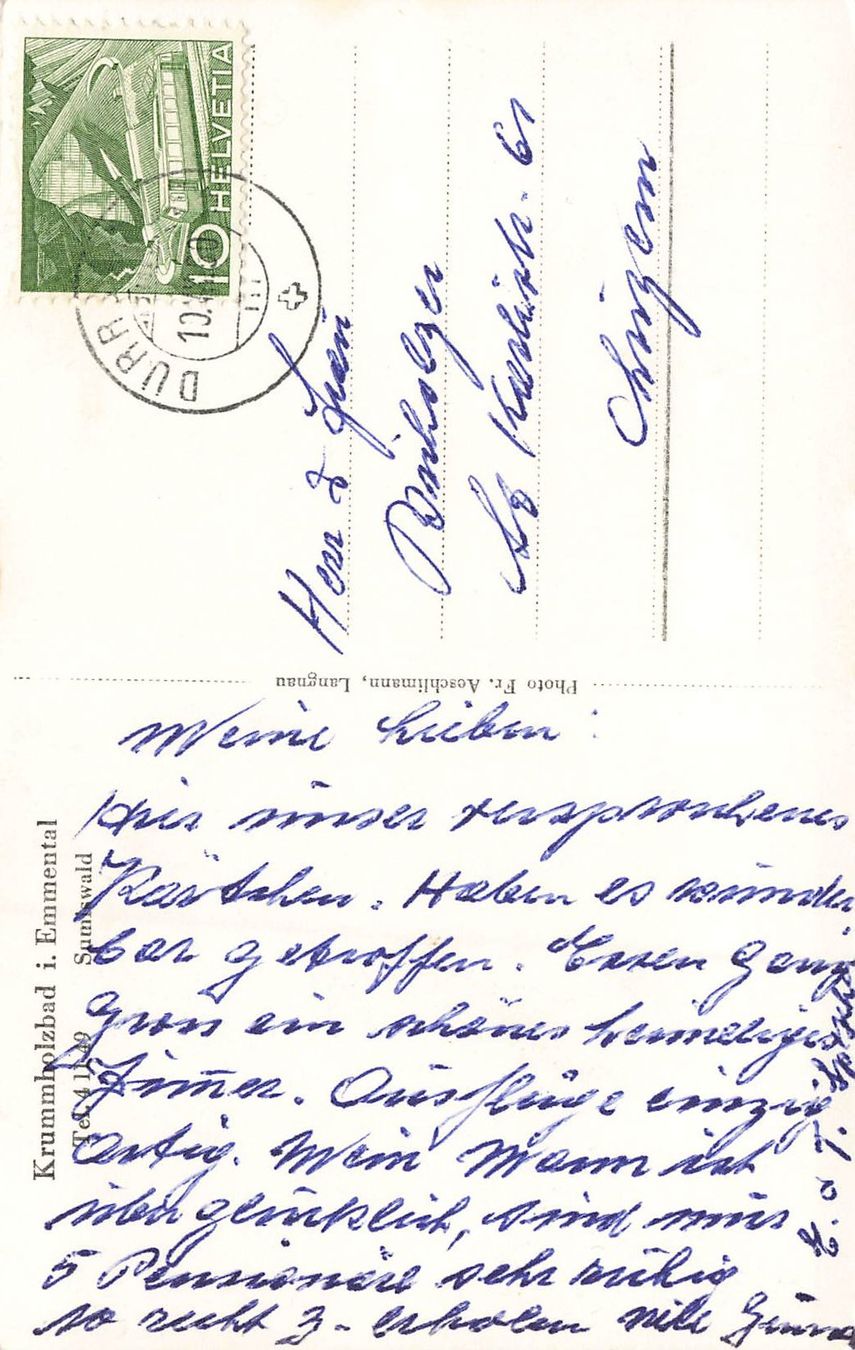 HELVETIA
10
DÜRR
10.
Herr & Frau
Luzern
Photo Fr. Aeschlimann, Langnau
Krummholzbad i. Emmental
Tel. 4 11 49 Sumiswald
Meine Lieben:
Hier unser versprochenes
Kärtchen. Haben es wunder
bar getroffen. Essen ganz
gross ein schönes heimeliges
Zimmer. Ausflüge einzig
artig. Mein Mann ist
überglücklich, sind nur
5 Pensionäre sehr ruhig
so recht z. erholen viele Grüsse